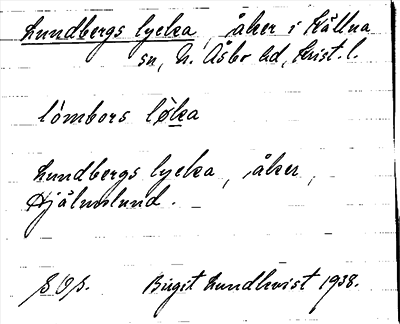 Lundbergs lycka, åker i Källna
sn, N. Åsbo hd, Krist. l.
lòmbərs løka
Lundbergs lycka, åker,
Hjälmslund.
S O B. Birgit Lundkvist 1938.